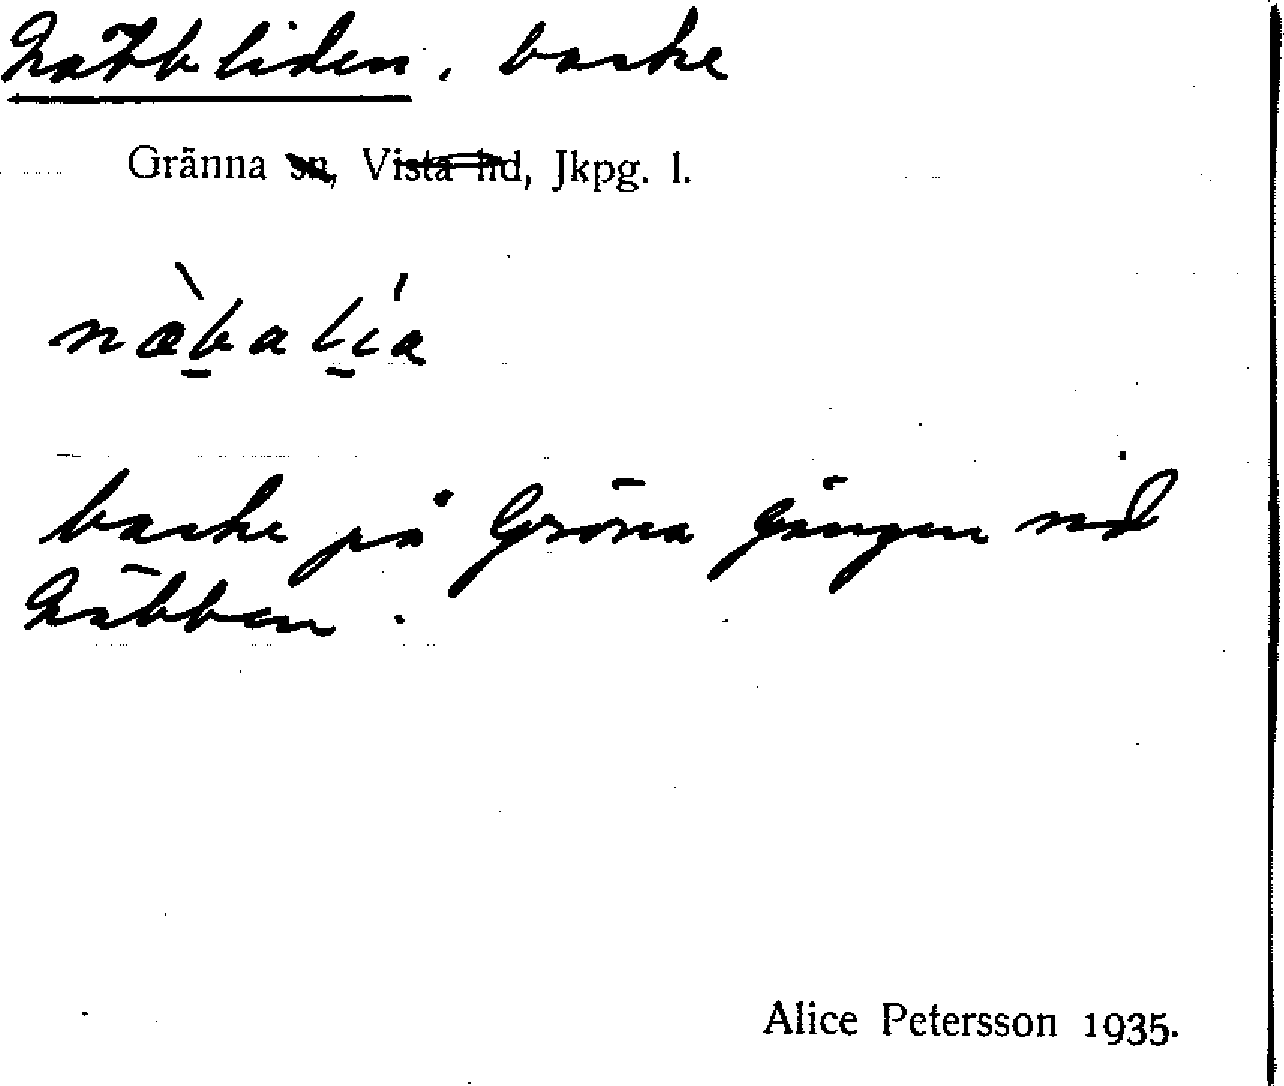 Näbbliden, backe
Gränna sn, Vista hd, Jkpg. l.
næ̀balía
backe på Gröna gången vid
Näbben.
Alice Petersson 1935.